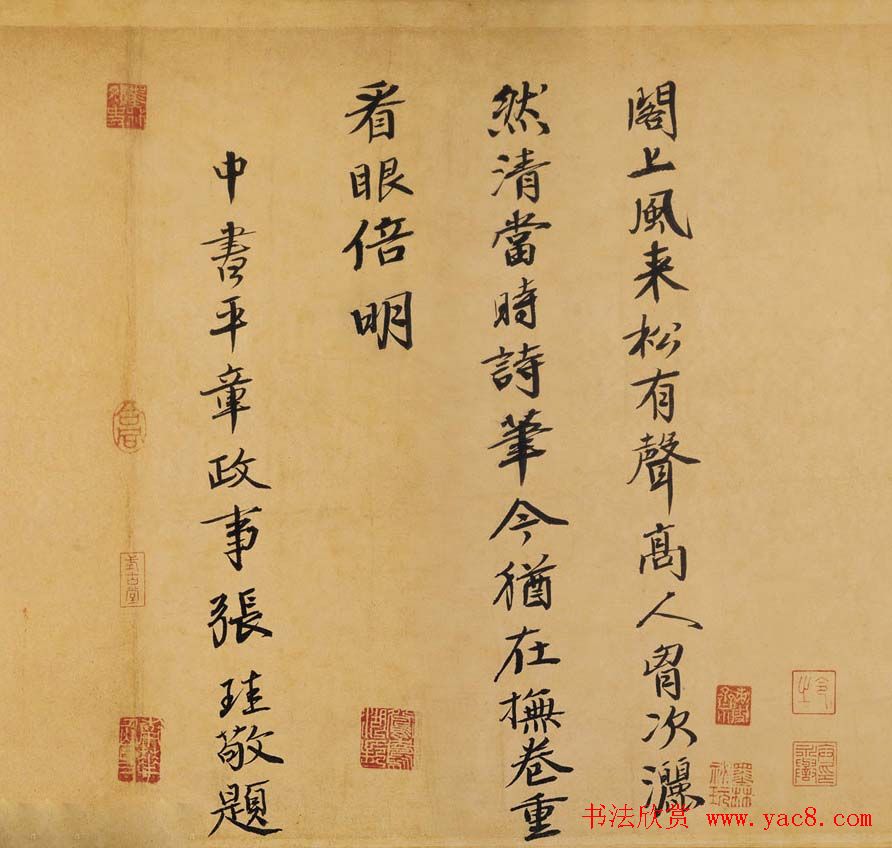 閣上風来松有聲髙人胷次灑
然清當時詩筆今猶在撫卷重
看眼倍明
中書平章政事張珪敬題
式古堂
书法欣赏 www.yac8.com